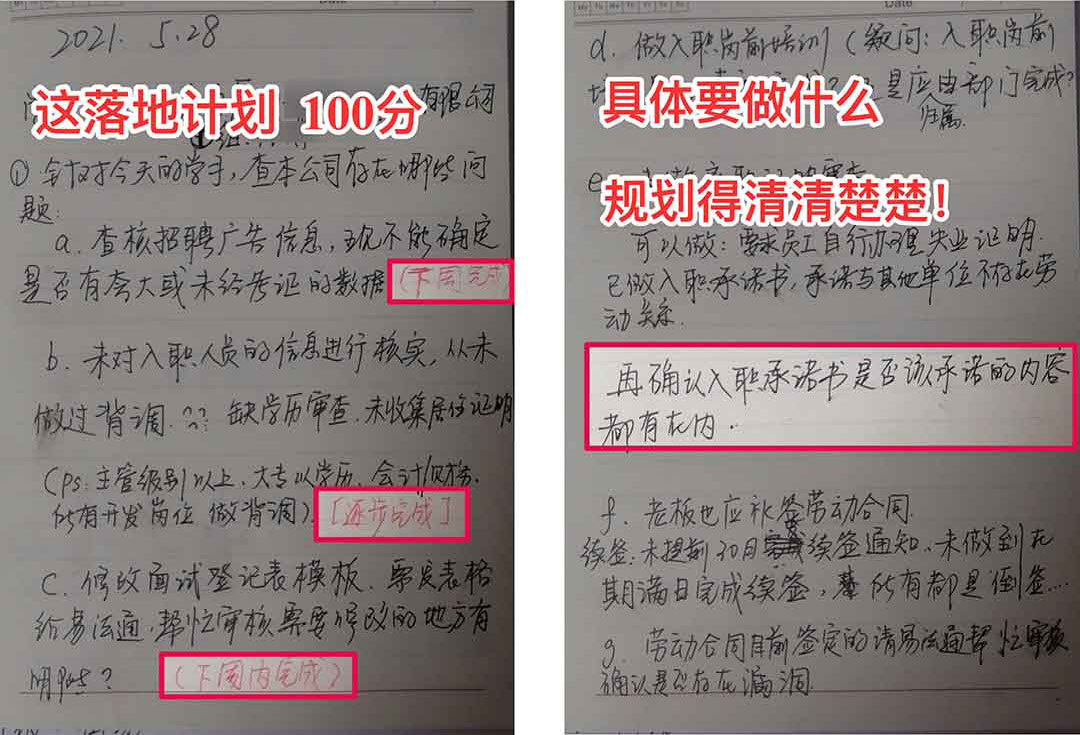 Date
2021. 5.28
有限公司
这落地计划 100分
组:
① 针对今天的学习,查本公司存在哪些问
题:
a. 查核招聘广告信息,现不能确定
是否有夸大或未经考证的数据(下周完成)
b. 未对入职人员的信息进行核实,从未
做过背调.??缺学历审查,未收集居住证明
(ps:主管级别以上、大专以学历、会计/财务、
所有开发岗位 做背调)[逐步完成]
C. 修改面试登记表模板.票发表格
给易法通,帮忙审核需要修改的地方有
哪些?(下周内完成)
Date
d. 做入职岗前培训(疑问:入职岗前
是应由部门完成?
归属
具体要做什么
e
规划得清清楚楚!
可以做:要求员工自行办理失业证明.
已做入职承诺书,承诺与其他单位不存在劳
动关系.
再确认入职承诺书是否该承诺的内容
都有在内.
f. 老板也应补签劳动合同.
续签:未提前30月续签通知、未做到在
期满日完成续签,所有都是倒签...
g. 劳动合同目前签定的请易法通帮忙审核
确认是否存在漏洞.